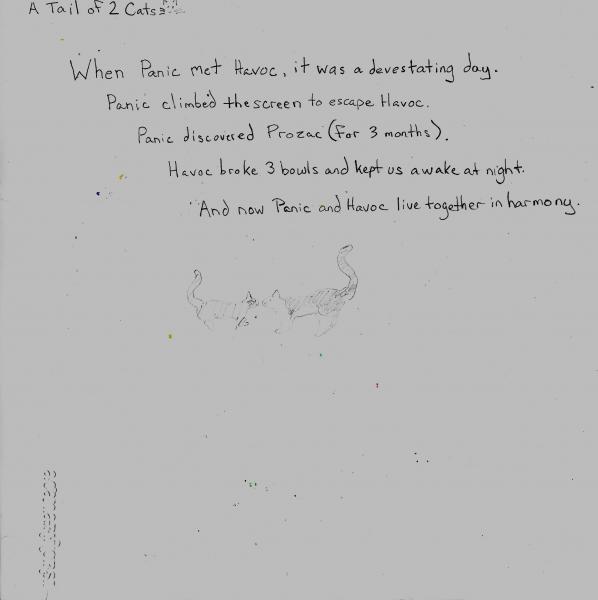 A Tail of 2 Cats
When Panic met Havoc, it was a devestating day.
Panic climbed the screen to escape Havoc.
Panic discovered Prozac (for 3 months).
Havoc broke 3 bowls and kept us awake at night.
And now Panic and Havoc live together in harmony.